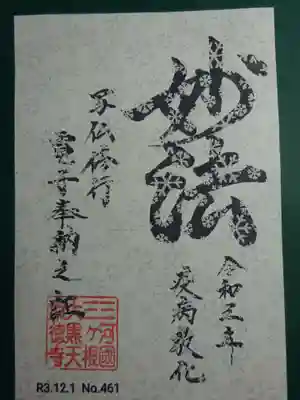 妙法
令和三年
疫病散化
写仏修行
寛子奉納之証
三河國
三ヶ根
黒天
徳寺
R3.12.1 No.461